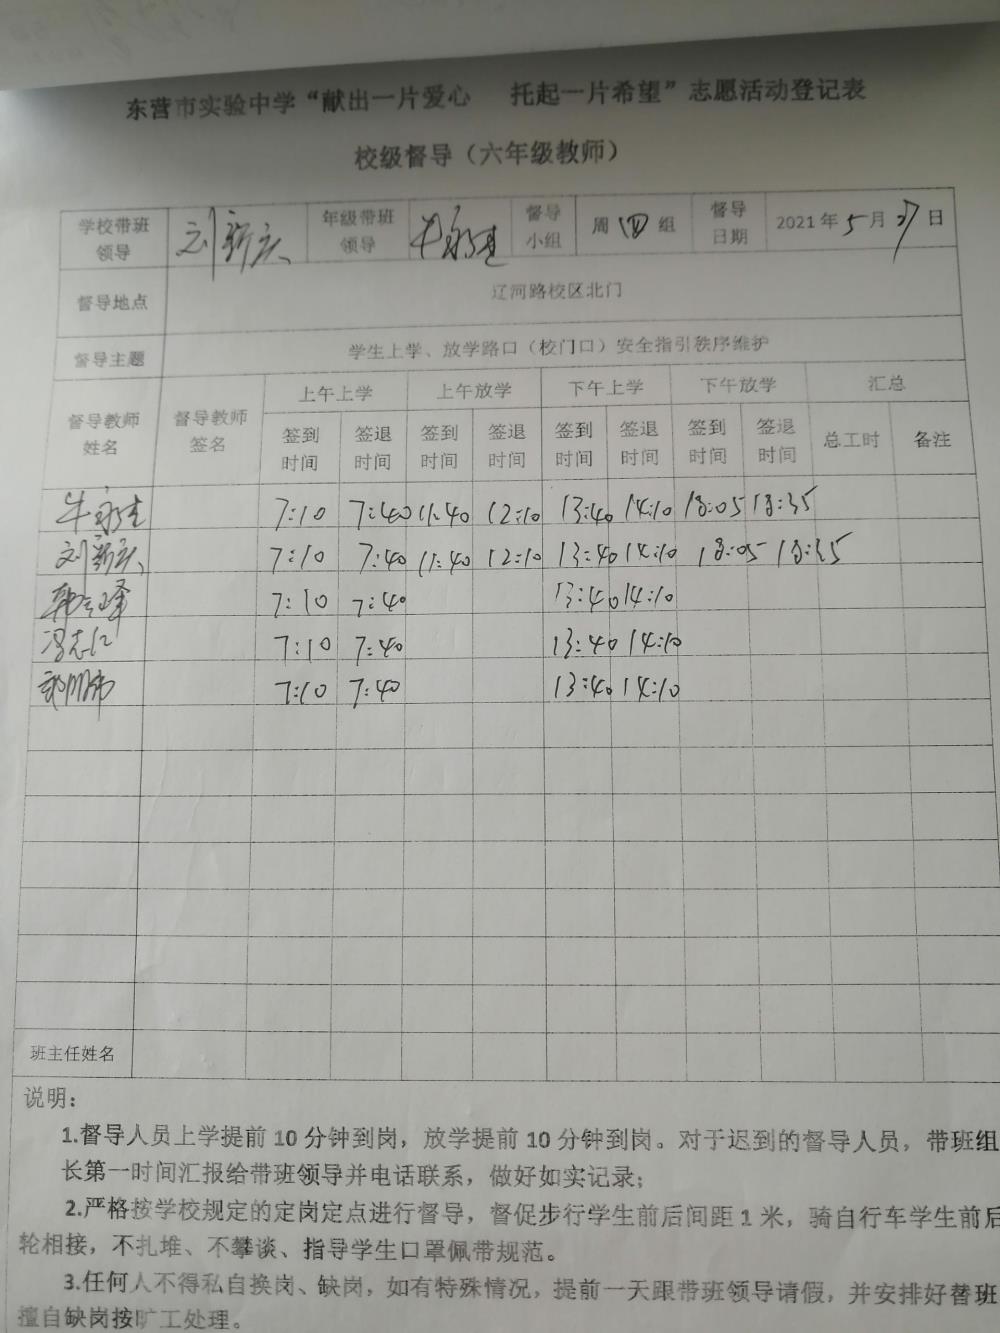 东营市实验中学“献出一片爱心 托起一片希望”志愿活动登记表
校级督导（六年级教师）
学校带班领导 刘新庆 年级带班领导 牛永 督导小组 周四组 督导日期 2021年5月27日
督导地点 辽河路校区北门
督导主题 学生上学、放学路口（校门口）安全指引秩序维护
督导教师姓名 督导教师签名 上午上学 上午放学 下午上学 下午放学 汇总
签到时间 签退时间 签到时间 签退时间 签到时间 签退时间 签到时间 签退时间 总工时 备注
牛永 7:10 7:40 11:40 12:10 13:40 14:10 18:05 18:35
刘新庆 7:10 7:40 11:40 12:10 13:40 14:10 18:05 18:35
7:10 7:40 13:40 14:10
冯志仁 7:10 7:40 13:40 14:10
7:10 7:40 13:40 14:10
班主任姓名
说明：
1.督导人员上学提前10分钟到岗，放学提前10分钟到岗。对于迟到的督导人员，带班组
长第一时间汇报给带班领导并电话联系，做好如实记录；
2.严格按学校规定的定岗定点进行督导，督促步行学生前后间距1米，骑自行车学生前后
轮相接，不扎堆、不攀谈、指导学生口罩佩带规范。
3.任何人不得私自换岗、缺岗，如有特殊情况，提前一天跟带班领导请假，并安排好替班
擅自缺岗按旷工处理。